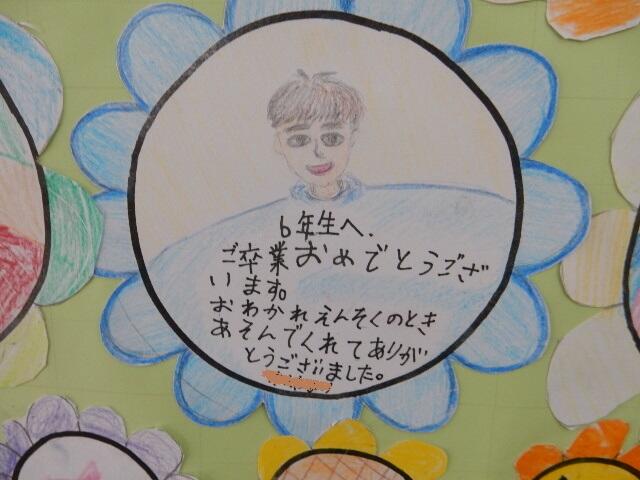 6年生へ.
ご卒業おめでとうござ
います。
おわかれえんそくのとき
あそんでくれてありが
とうございました。